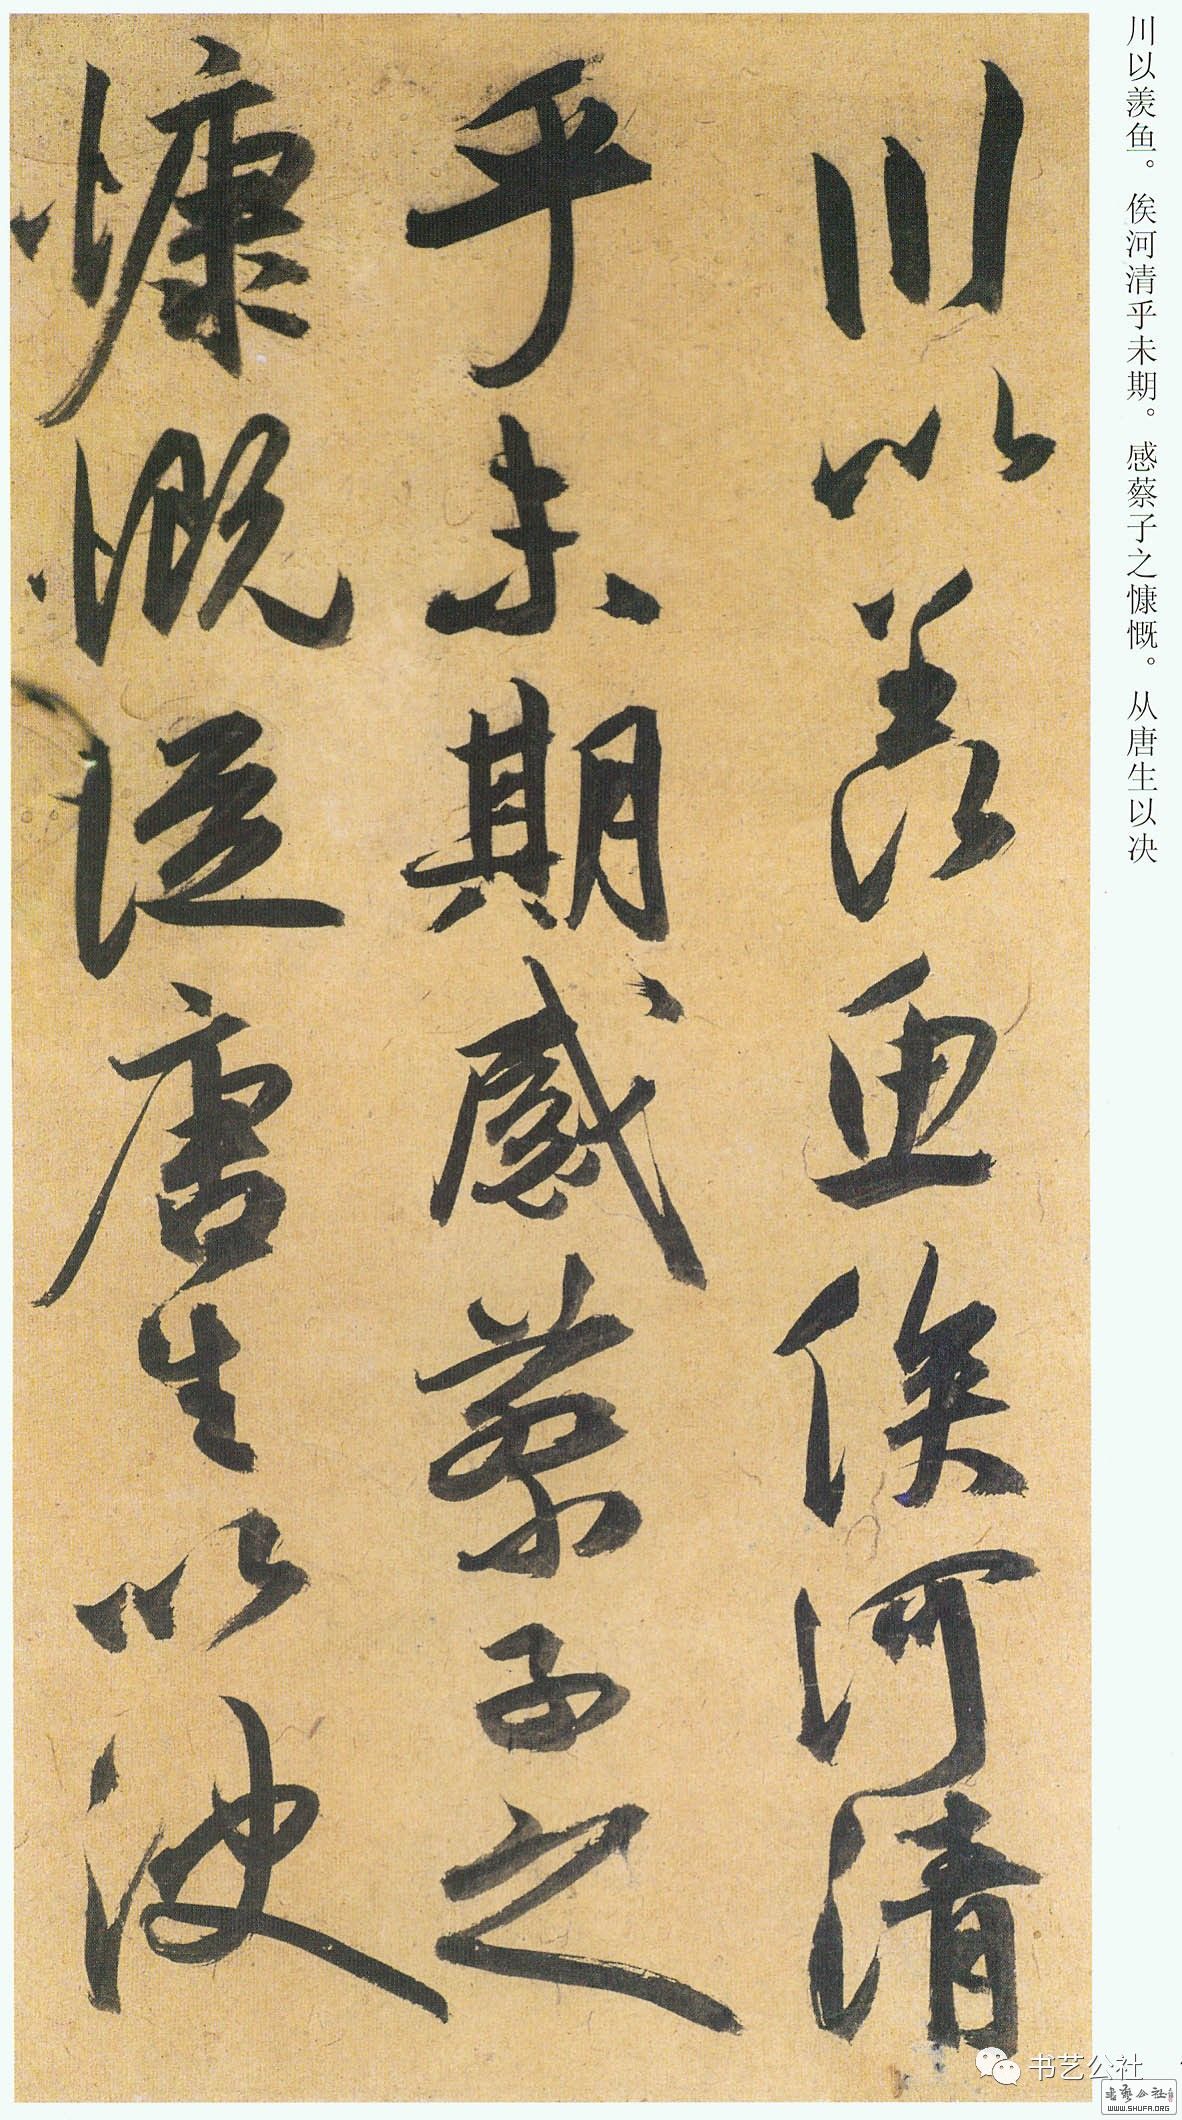 川以羡鱼。俟河清乎未期。感蔡子之慷慨。从唐生以决
川以羡魚俟河清
乎未期感蔡子之
慷慨從唐生以決
书艺公社
书艺公社
WWW.SHUFA.ORG